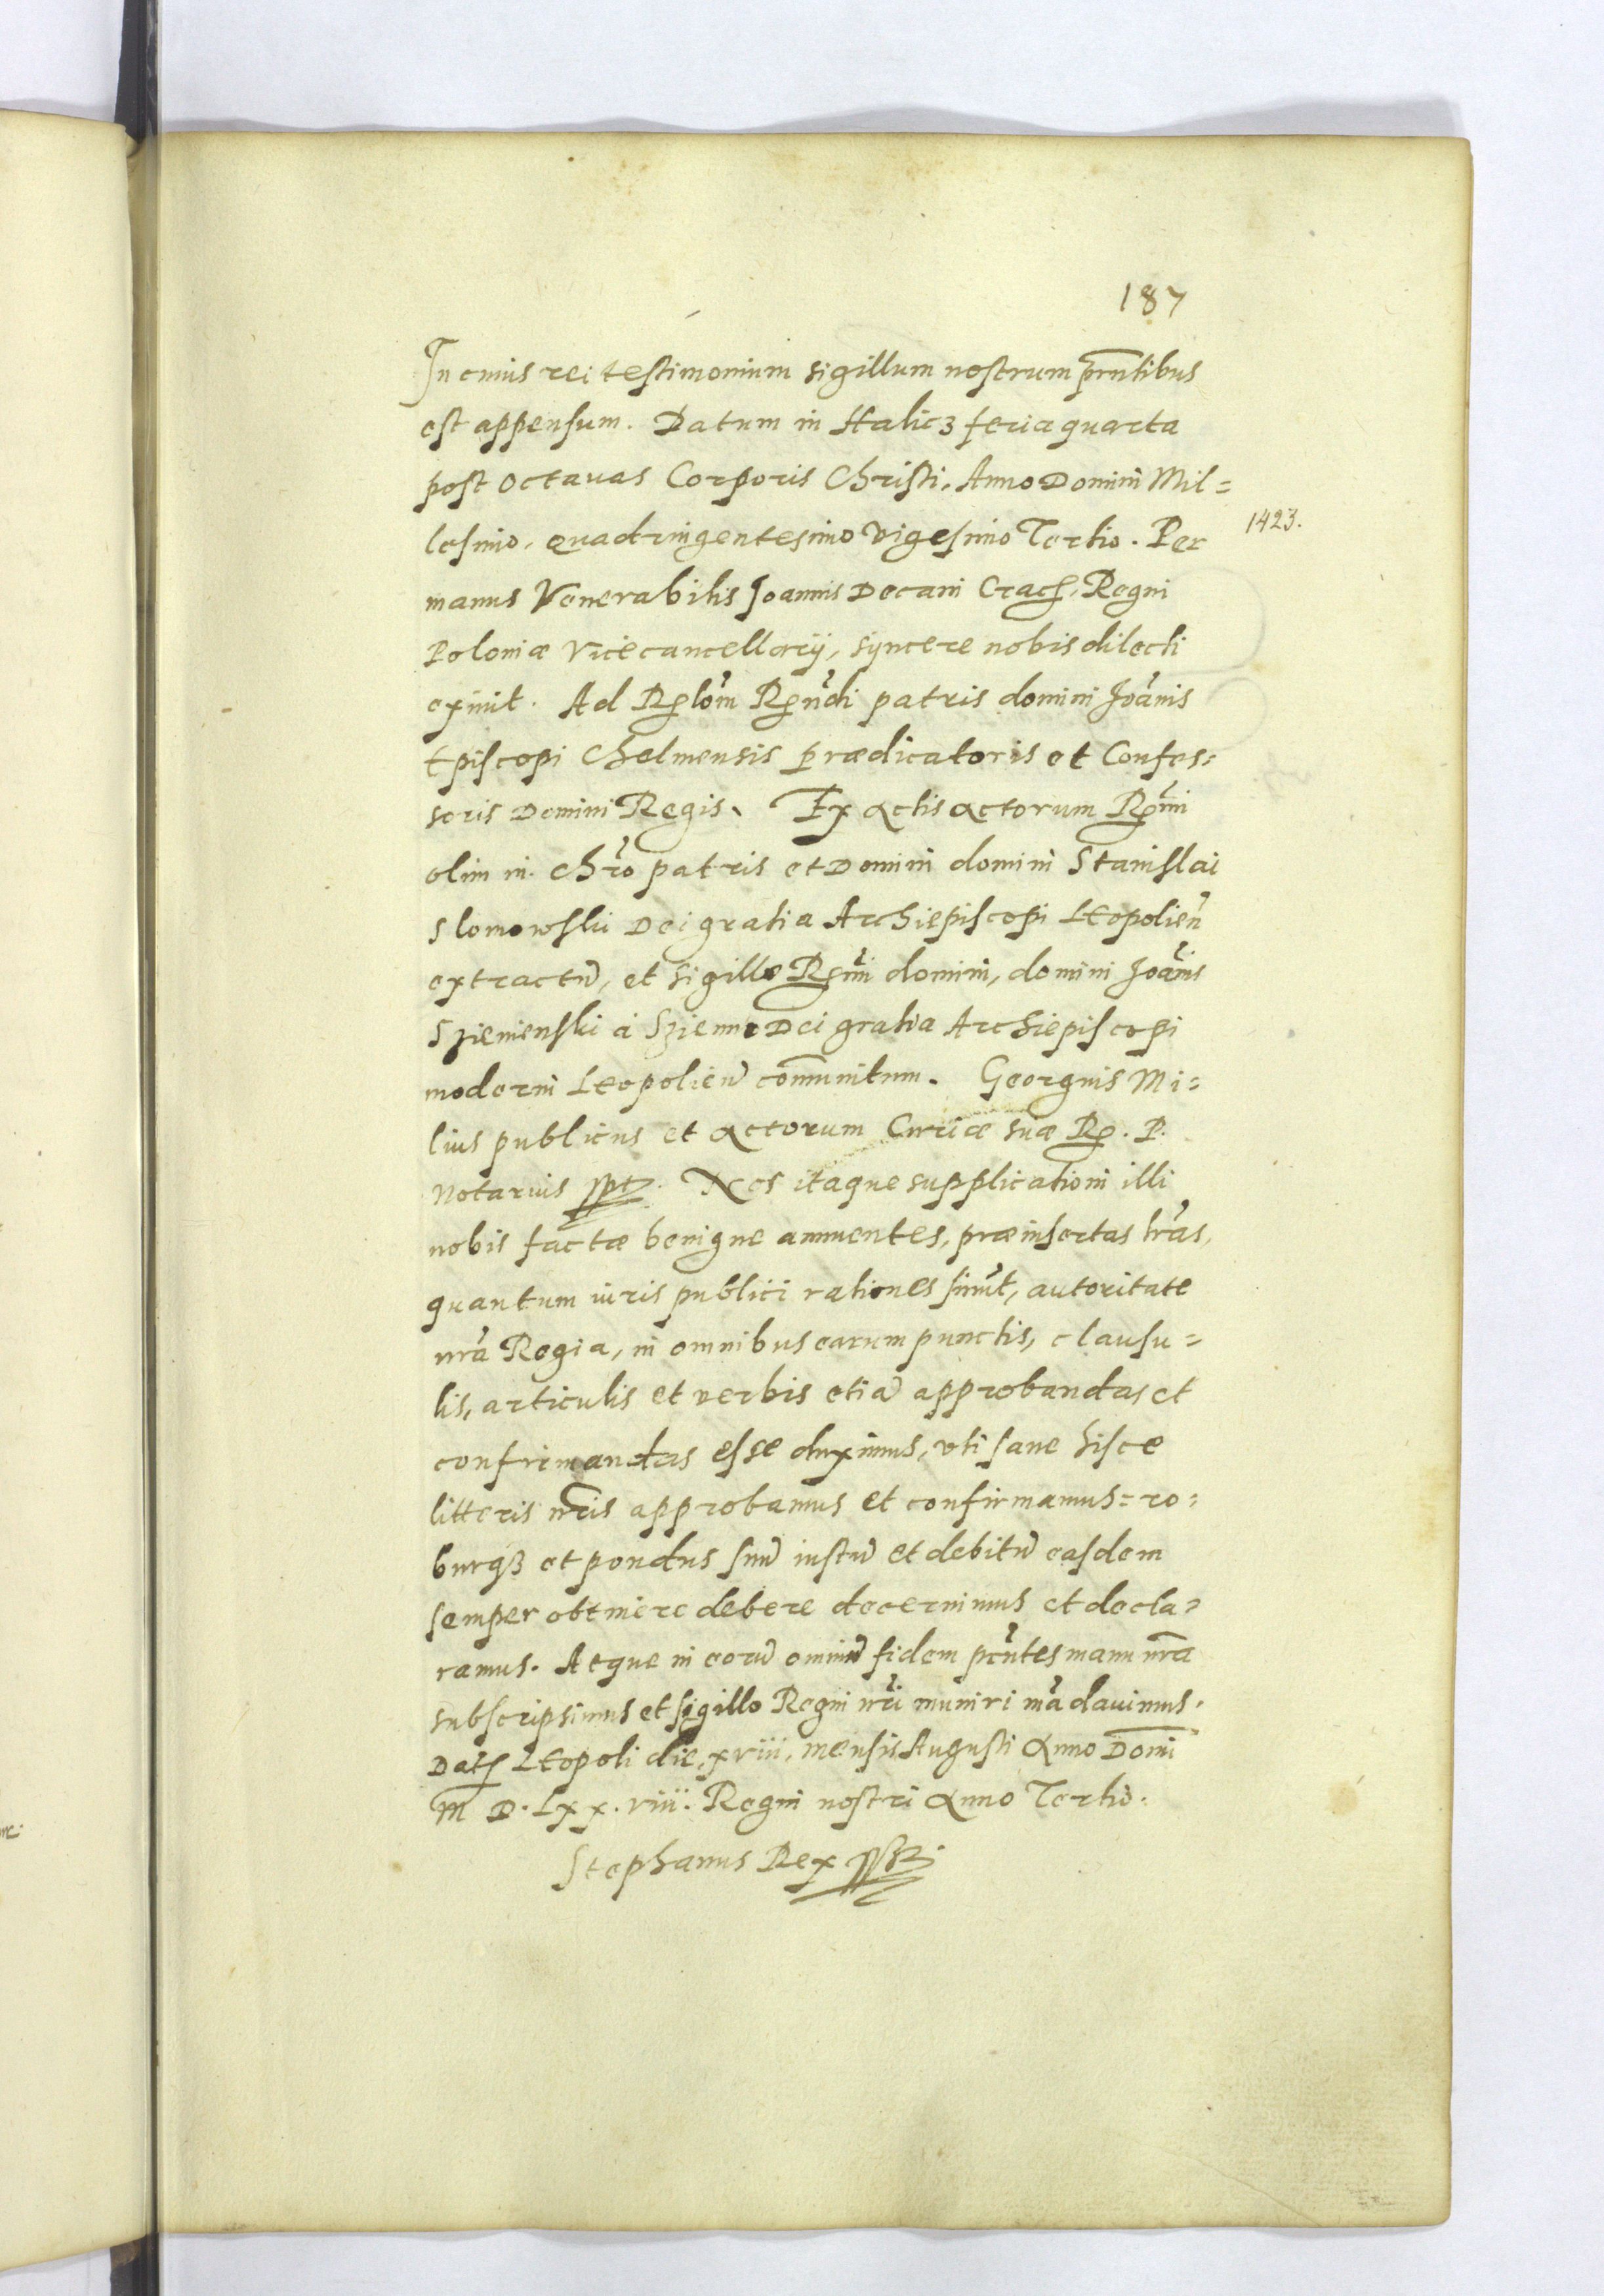 187
In cuius rei testimonium sigillum nostrum prñtibus
est appensum. Datum in Halicz feria quarta
post octauas Corporis Christi, Anno Domini Mil=
lesimo, quadringentesimo vigesimo Tertio. Per
1423.
manus Venerabilis Joannis Decani Crac. Regni
Poloniæ Vicecancellarij, syncere nobis dilecti
exiuit. Ad Rlõm Rñdi patris domini Joãnis
Episcopi Chelmensis prædicatoris et Confes=
soris Domini Regis. Ex actis actorum Rm̃i
olim in Chrõ patris et Domini domini Stanislai
Slomowski Dei gratia Archiepiscopi Leopolieñ
extractũ, et sigillo Rm̃i domini, domini Joãnis
Szienienski à Szienno Dei gratia Archiepiscopi
moderni Leopolieñ com̃unitum. Georgius Mi=
lius publicus et actorum Curiæ suæ R. P.
Notarius sspt. Nos itaque supplicationi illi
nobis factæ benigne annuentes, præinsertas lrãs,
quantum iuris publici rationes sinũt, autoritate
nrã Regia, in omnibus earum punctis, clausu=
lis, articulis et verbis etiã approbandas et
confirmandas esse duximus, vti sane hisce
litteris nr̃is approbamus et confirmamus = ro=
burq3 et pondus suũ iustũ et debitũ easdem
semper obtinere debere decernimus et decla=
ramus. Atque in eorũ omniũ fidem pñtes manu nrã
subscripsimus et sigillo Regni nrĩ muniri mãdauimus.
Dat Leopoli die, xviii, mensis Augusti Anno Domi
M D. Lxx. viii. Regni nostri Anno Tertio.
Stephanus Rex sspt.